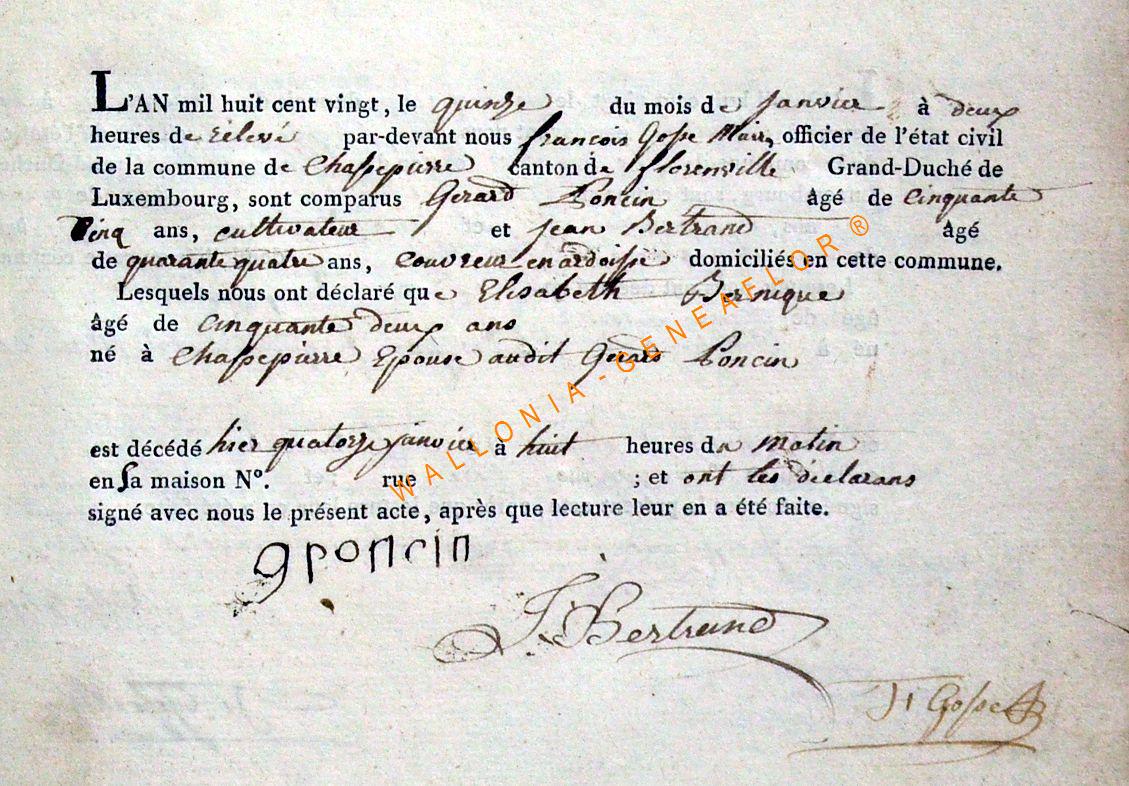 L'AN mil huit cent vingt, le quinze du mois de janvier à deux
heures de relevé par-devant nous françois Gosse Maire, officier de l'état civil
de la commune de Chassepierre canton de florenville Grand-Duché de
Luxembourg, sont comparus Gerard Poncin âgé de cinquante
Cinq ans, cultivateur et jean Bertrand âgé
de quarante quatre ans, Couvreur en ardoisse domiciliés en cette commune.
Lesquels nous ont déclaré que Elisabeth Bernique
âgé de cinquante deux ans
né à Chassepierre Epouse audit Gerard Poncin
est décédé hier quatorze janvier à huit heures du Matin
en Sa maison N°. rue ; et ont les declarans
signé avec nous le présent acte, après que lecture leur en a été faite.
gponcin
J. Bertrand
Gosse
WALLONIA-GENEAFLOR®